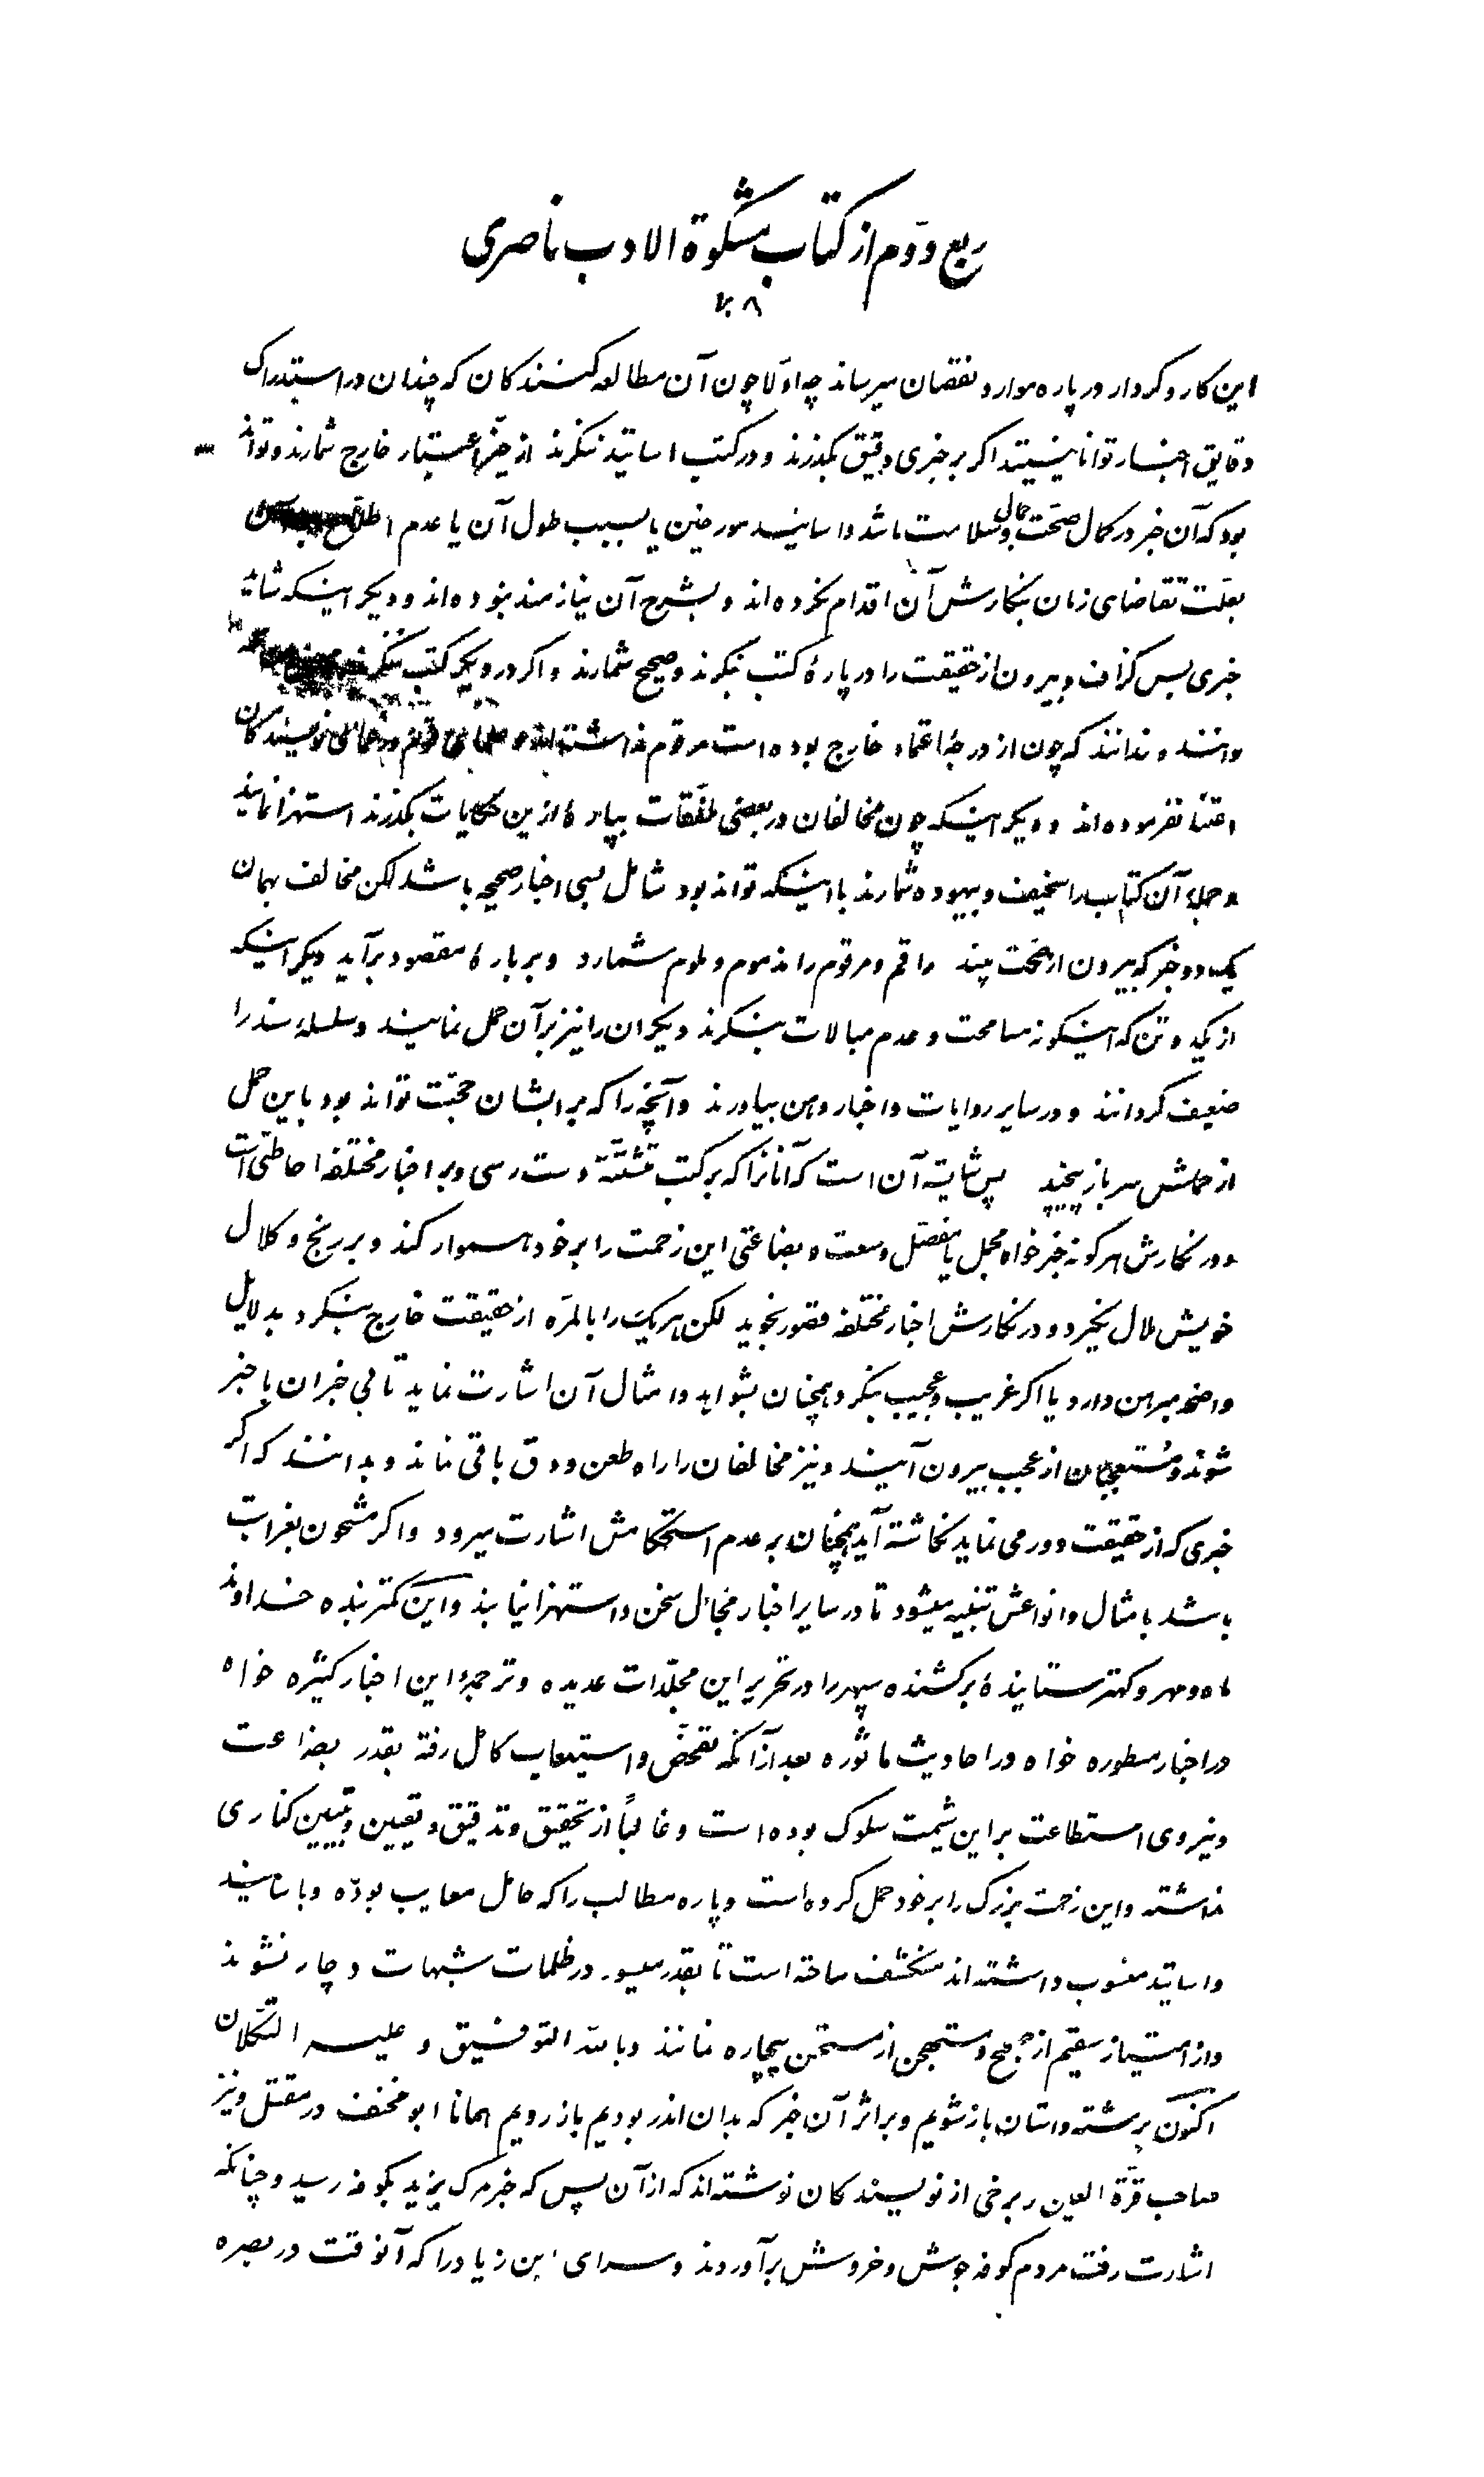 ربع دوّم از کتاب مشکوة الادب ناصری
۴۰۸
این کار و کردار در پاره موارد نقصان میرساند چه اوّلا چون آن مطالعه کنندکان که چندان در استدراک
دقایق اخبار توانا نیستند اکر بر خبری دقیق بکذرند و در کتب اساتید ننکرند از حیّز اعتبار خارج شمارند و تواند
بود که آن خبر در کمال صحّت و کمال سلامت باشد و اساتید مورخین یا بسبب طول آن یا عدم اطلاع
بعلّت تقاضای زمان بنکارش آن اقدام نکرده‌اند و بشرح آن نیازمند نبوده‌اند و دیکر اینکه شاید
خبری بس کزاف و بیرون از حقیقت را در پارهٔ کتب بنکرند و صحیح شمارند و اکر در دیکر کتب ننکرند
دانند و ندانند که چون از درجهٔ اعتماد خارج بوده است مرقوم نداشته‌اند و علمای قوم و نویسندکان
اعتنا نفرموده‌اند و دیکر اینکه چون مخالفان در بعضی ملفّقات بپارهٔ ازین حکایات بکذرند استهزا نمایند
و جملهٔ آن کتاب را سخیف و بیهوده شمارند با اینکه تواند بود شامل بسی اخبار صحیحه باشد لکن مخالف بهمان
یک دو خبر که بیرون از صحّت بیند راقم و مرقوم را مذموم و ملوم شمارد و بر بارهٔ مقصود برآید دیکر اینکه
از یکدو تن که اینکونه مسامحت و عدم مبالات بنکرند دیکران را نیز بر آن حمل نمایند و سلسلهٔ سند را
ضعیف کردانند و در سایر روایات و اخبار وهن بیاورند و آنچه را که بر ایشان حجّت تواند بود باین حمل
از حملش سر باز پیچند پس شایسته آن است که آنانرا که بر کتب متشتّته دست رسی و بر اخبار مختلفه احاطتی است
و در نکارش هر کونه خبر خواه مجمل یا مفصّل وسعت و بضاعتی این زحمت را بر خود هموار کند و بر رنج و کلال
خویش ملال نکیرد و در نکارش اخبار مختلفه قصور نجوید لکن هریک را بالمرّه از حقیقت خارج بنکرد بدلایل
واضحه مبرهن دارد یا اکر غریب و عجیب بنکرد همچنان بشواهد و امثال آن اشارت نماید تا بی خبران با خبر
شوند و مستعجبان از عجب بیرون آیند و نیز مخالفان را راه طعن و دق باقی نماند و بدانند که اکر
خبری که از حقیقت دور می نماید نکاشته آید همچنان بر عدم استحکامش اشارت میرود و اکر مشحون بغرابت
باشد بامثال و انواعش تنبیه میشود تا در سایر اخبار مجال سخن و استهزا نیابند و این کمتر بنده خداوند
ماه و مهر و کهتر ستایندهٔ برکشنده سپهر را در تحریر این مجلّدات عدیده و ترجمهٔ این اخبار کثیره خواه
در اخبار مسطوره خواه در احادیث ماثوره بعد از آنکه تفحّص و استیعاب کامل رفته بقدر بضاعت
و نیروی استطاعت بر این شیمت سلوک بوده است و غالباً از تحقیق و تدقیق و تعیین و تبیین کناری
نداشته و این زحمت بزرک را بر خود حمل کرده است و پاره مطالب را که حامل معایب بوده و باسانید
و اساتید منسوب داشته‌اند منکشف ساخته است تا بقدر میسور در ظلمات شبهات دچار نشوند
و از امتیاز سقیم از صحیح و مستهجن از مستحسن بیچاره نمانند و باللّه التوفیق و علیه التّکلان
اکنون برشته داستان باز شویم و بر اثر آن خبر که بدان اندر بودیم باز رویم همانا ابو مخنف در مقتل و نیز
صاحب قرّة العین و برخی از نویسندکان نوشته‌اند که از آن پس که خبر مرک یزید بکوفه رسید و چنانکه
اشارت رفت مردم کوفه جوش و خروش برآوردند و سرای ابن زیاد را که آنوقت در بصره